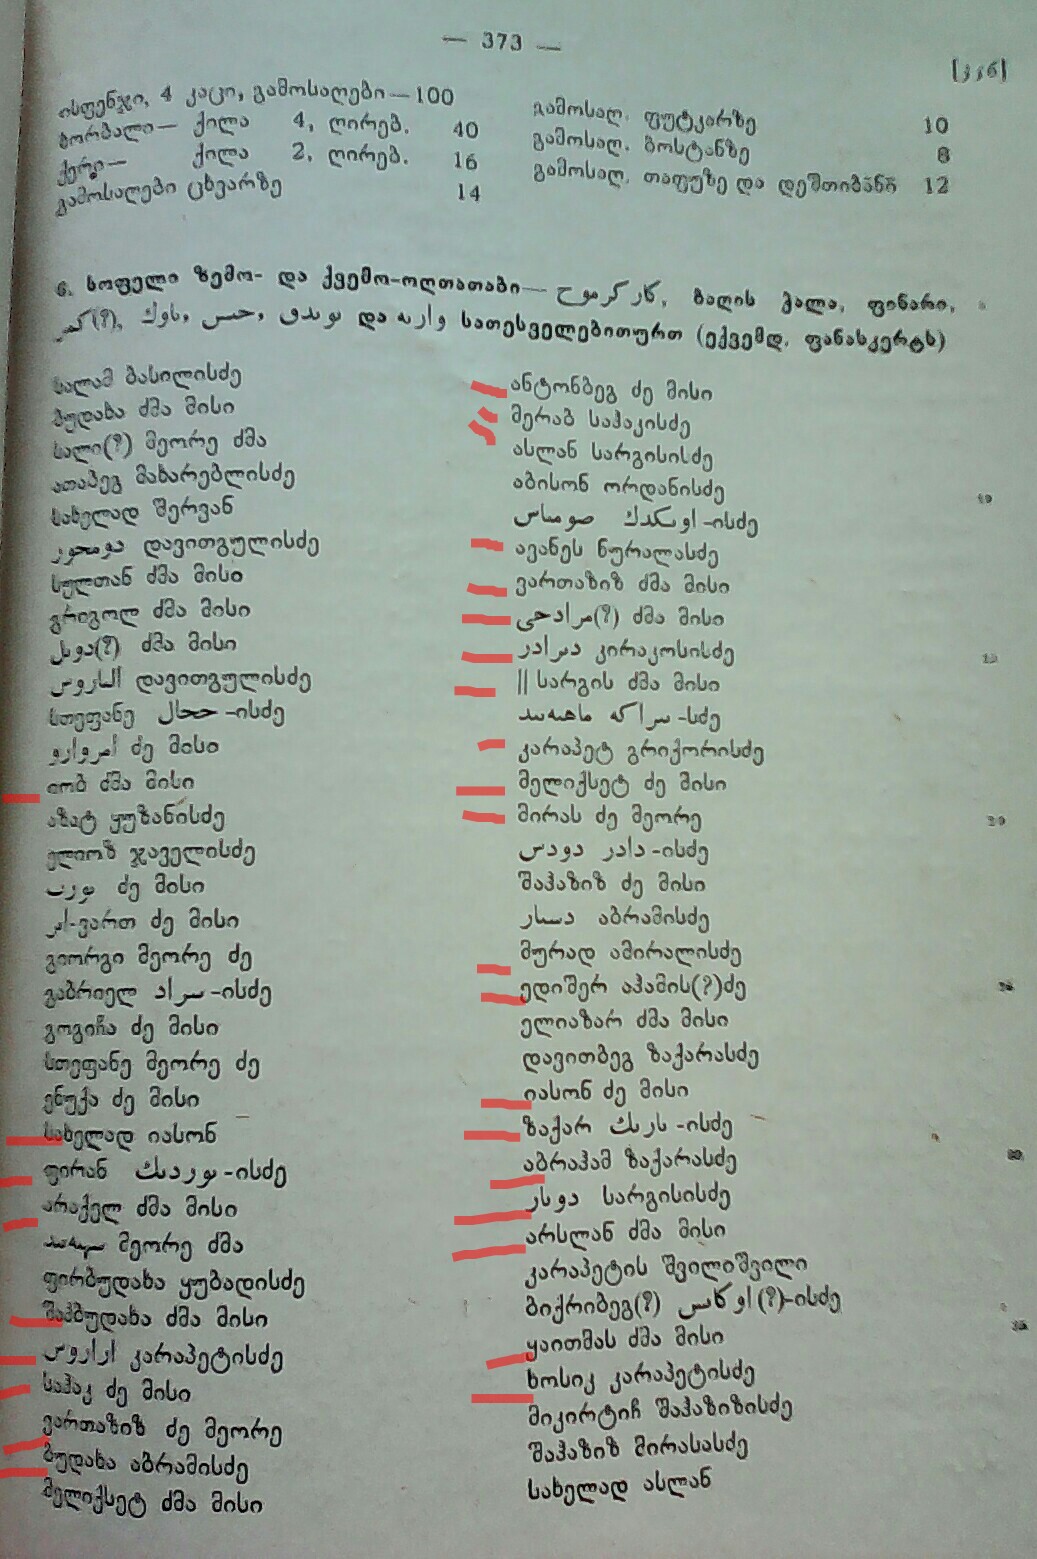 — 373 —
ისფენჯი, 4 კაცი, გამოსაღები—100
ხორბალი— ქილა 4, ღირებ. 40
ქერი— ქილა 2, ღირებ. 16
გამოსაღები ცხვარზე 14
გამოსაღ. ფუტკარზე 10
გამოსაღ. ბოსტანზე 8
გამოსაღ. თაფუზე და დეშთიბანზე 12
6. სოფელი ზემო- და ქვემო-ოღთათაბი— كار كرموح, ბაღის ჭალა, ფინარი,
და სათესველებითურთ (ექვემდ. ფანასკერტს)
სალამ ბასილისძე
ბუდახა ძმა მისი
სალი(?) მეორე ძმა
ათაბეგ მახარებლისძე
სახელად შერვან
დავითგულისძე
სულთან ძმა მისი
გრიგოლ ძმა მისი
(?) ძმა მისი
დავითგულისძე
სთეფანე -ისძე
ძე მისი
იობ ძმა მისი
აზატ ყუზანისძე
ელიოზ ჯაველისძე
ძე მისი
-ვართ ძე მისი
გიორგი მეორე ძე
გაბრიელ سراد -ისძე
გოგიჩა ძე მისი
სთეფანე მეორე ძე
ენუქა ძე მისი
სახელად იასონ
ფირან -ისძე
არაქელ ძმა მისი
მეორე ძმა
ფირბუდახა ყუბადისძე
შაჰბუდახა ძმა მისი
კარაპეტისძე
საჰაკ ძე მისი
ვართაზიზ ძე მეორე
ბუდახა აბრამისძე
მელიქსეტ ძმა მისი
ანტონბეგ ძე მისი
მერაბ საჰაკისძე
ასლან სარგისისძე
აბისონ ორდანისძე
-ისძე
ავანეს ნურალასძე
ვართაზიზ ძმა მისი
مرادحى(?) ძმა მისი
კირაკოსისძე
|| სარგის ძმა მისი
-სძე
კარაპეტ გრიქორისძე
მელიქსეტ ძე მისი
მირას ძე მეორე
-ისძე
შაჰაზიზ ძე მისი
აბრამისძე
მურად ამირალისძე
ედიშერ აჰამის(?)ძე
ელიაზარ ძმა მისი
დავითბეგ ზაქარასძე
იასონ ძე მისი
ზაქარ -ისძე
აბრაჰამ ზაქარასძე
სარგისისძე
არსლან ძმა მისი
კარაპეტის შვილიშვილი
ბიქრიბეგ(?) (?)-ისძე
ყაითმას ძმა მისი
ხოსიკ კარაპეტისძე
მიკირტიჩ შაჰაზიზისძე
შაჰაზიზ მირასასძე
სახელად ასლან